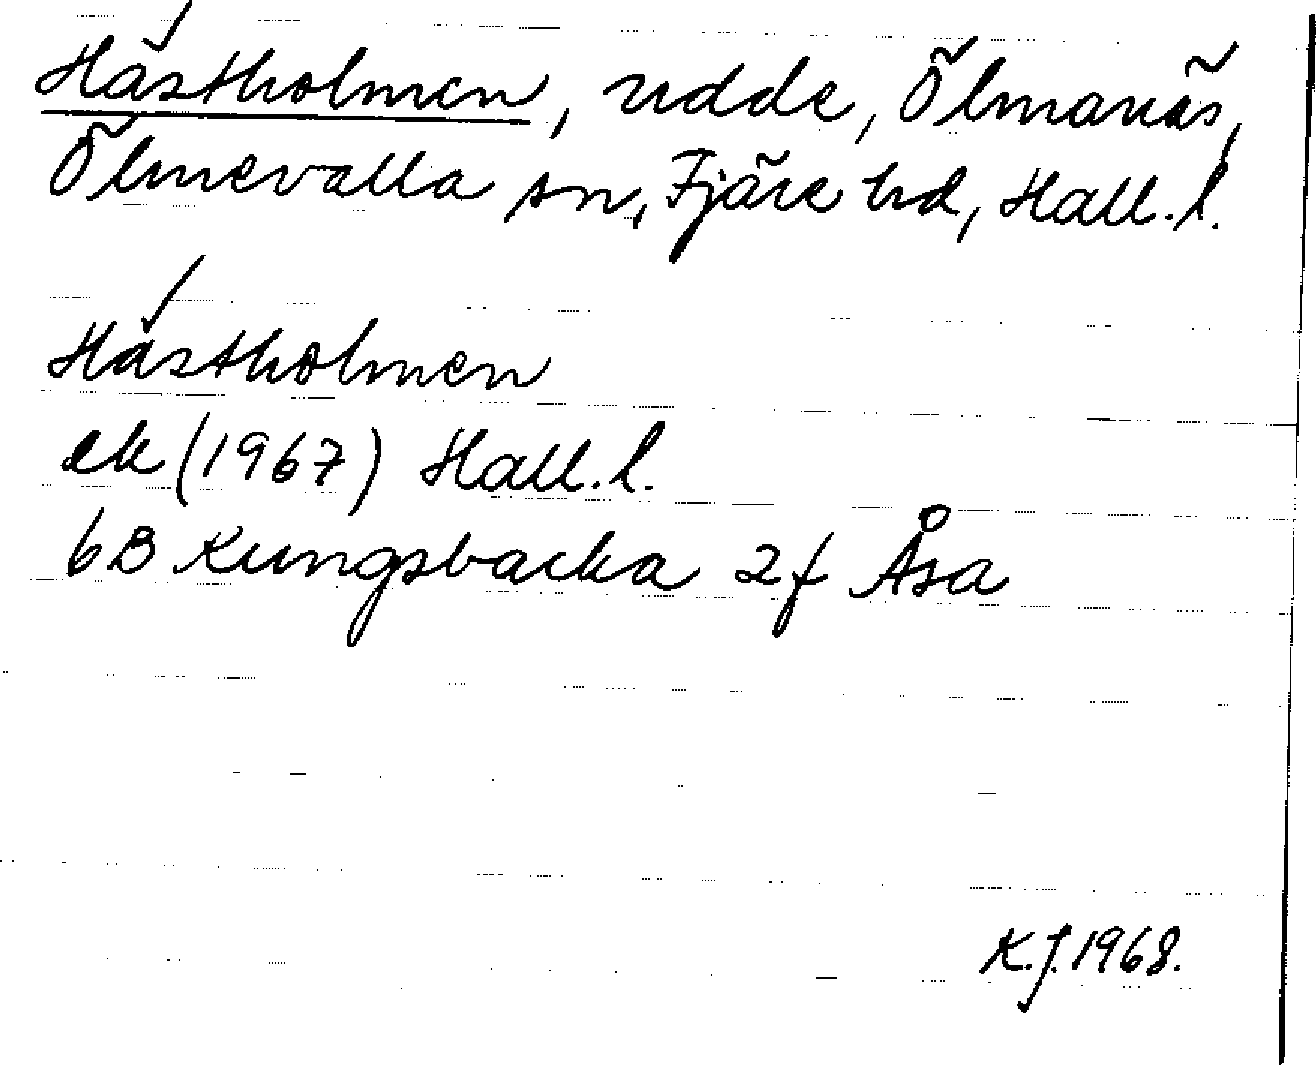 Hästholmen, udde, Ölmanäs,
Ölmevalla sn, Fjäre hd, Hall. l.
Hästholmen
ek (1967) Hall. l.
6B Kungsbacka 2f Åsa
K.J. 1968.